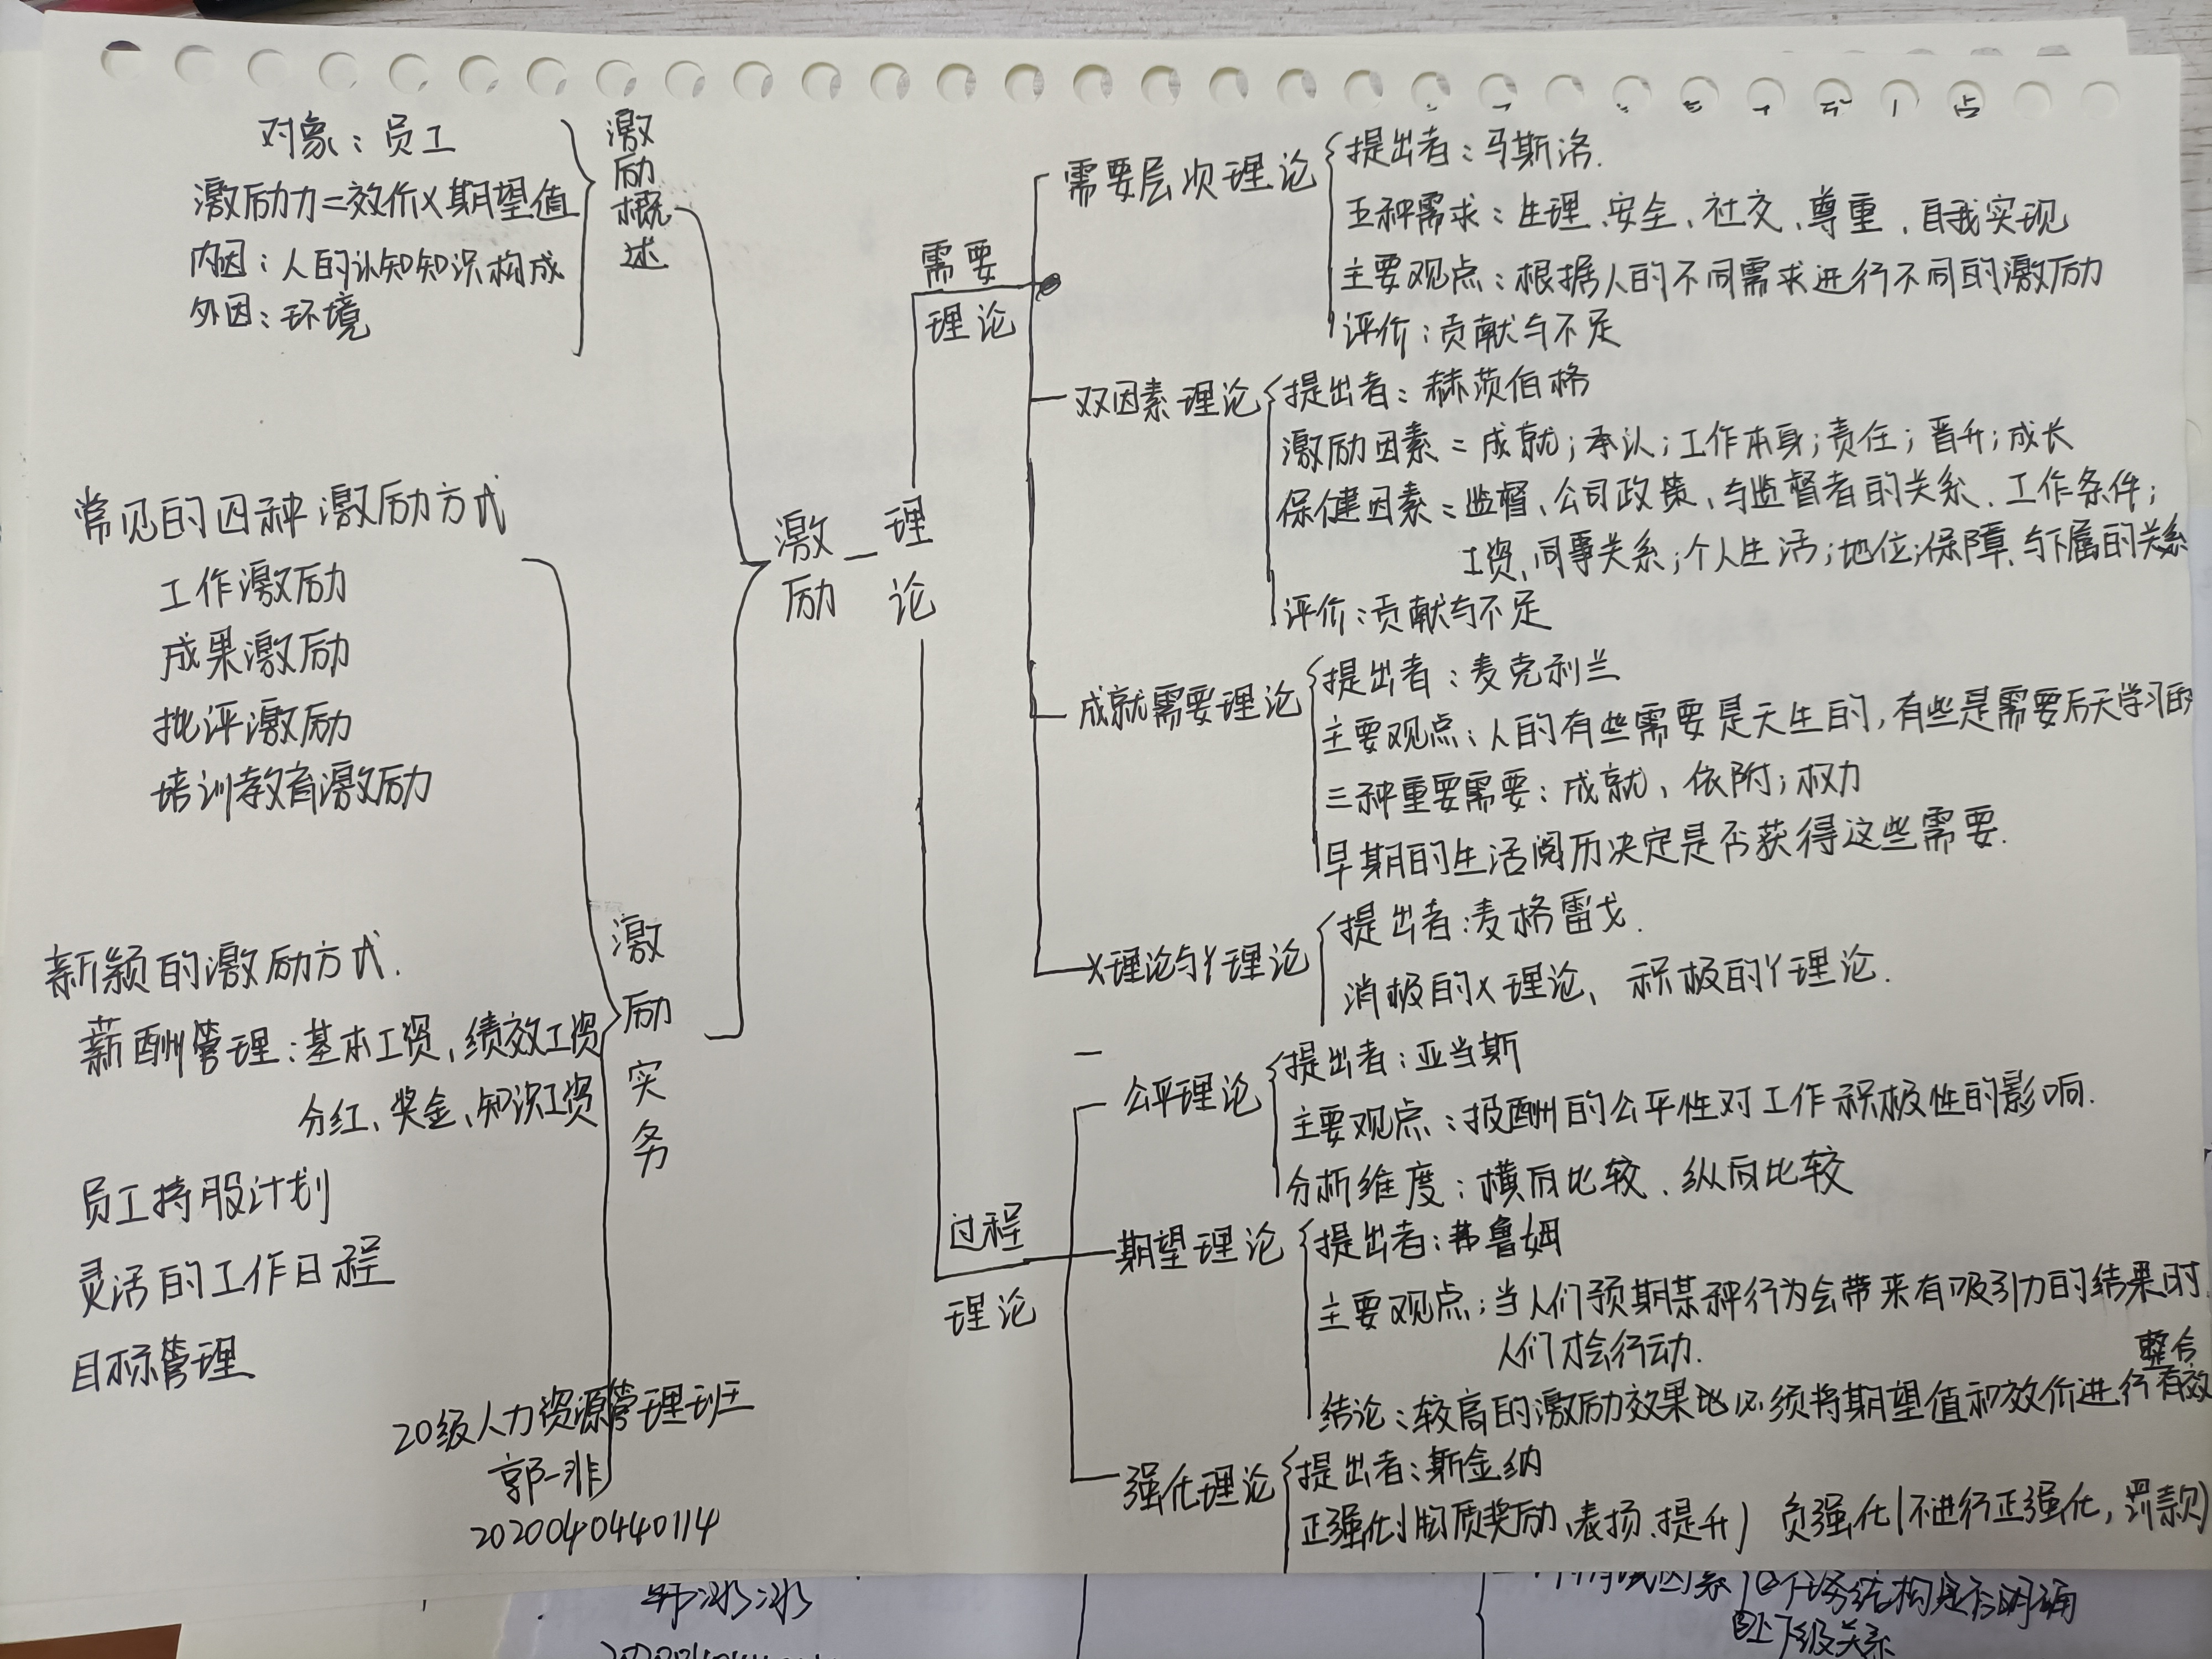 对象：员工
激励力＝效价×期望值
内因：人的认知知识构成
外因：环境
激励概述
常见的四种激励方式
工作激励
成果激励
批评激励
培训教育激励
新颖的激励方式.
薪酬管理：基本工资、绩效工资
分红、奖金、知识工资
员工持股计划
灵活的工作日程
目标管理
激励实务
20级人力资源管理班
郭一非
202004040114
激励
理论
需要
理论
需要层次理论
提出者：马斯洛.
五种需求：生理、安全、社交、尊重、自我实现
主要观点：根据人的不同需求进行不同的激励
评价：贡献与不足
双因素理论
提出者：赫茨伯格
激励因素＝成就；承认；工作本身；责任；晋升；成长
保健因素＝监督、公司政策、与监督者的关系、工作条件；
工资、同事关系；个人生活；地位；保障、与下属的关系
评价：贡献与不足
成就需要理论
提出者：麦克利兰
主要观点：人的有些需要是天生的，有些是需要后天学习的
三种重要需要：成就、依附；权力
早期的生活阅历决定是否获得这些需要.
X理论与Y理论
提出者：麦格雷戈.
消极的X理论、积极的Y理论.
过程
理论
公平理论
提出者：亚当斯
主要观点：报酬的公平性对工作积极性的影响.
分析维度：横向比较、纵向比较
期望理论
提出者：弗鲁姆
主要观点：当人们预期某种行为会带来有吸引力的结果时，
人们才会行动.
结论：较高的激励效果必须将期望值和效价进行有效
整合
强化理论
提出者：斯金纳
正强化(物质奖励、表扬、提升) 负强化(不进行正强化，罚款)
冰冰
因素 ②任务结构是否明确
③上下级关系